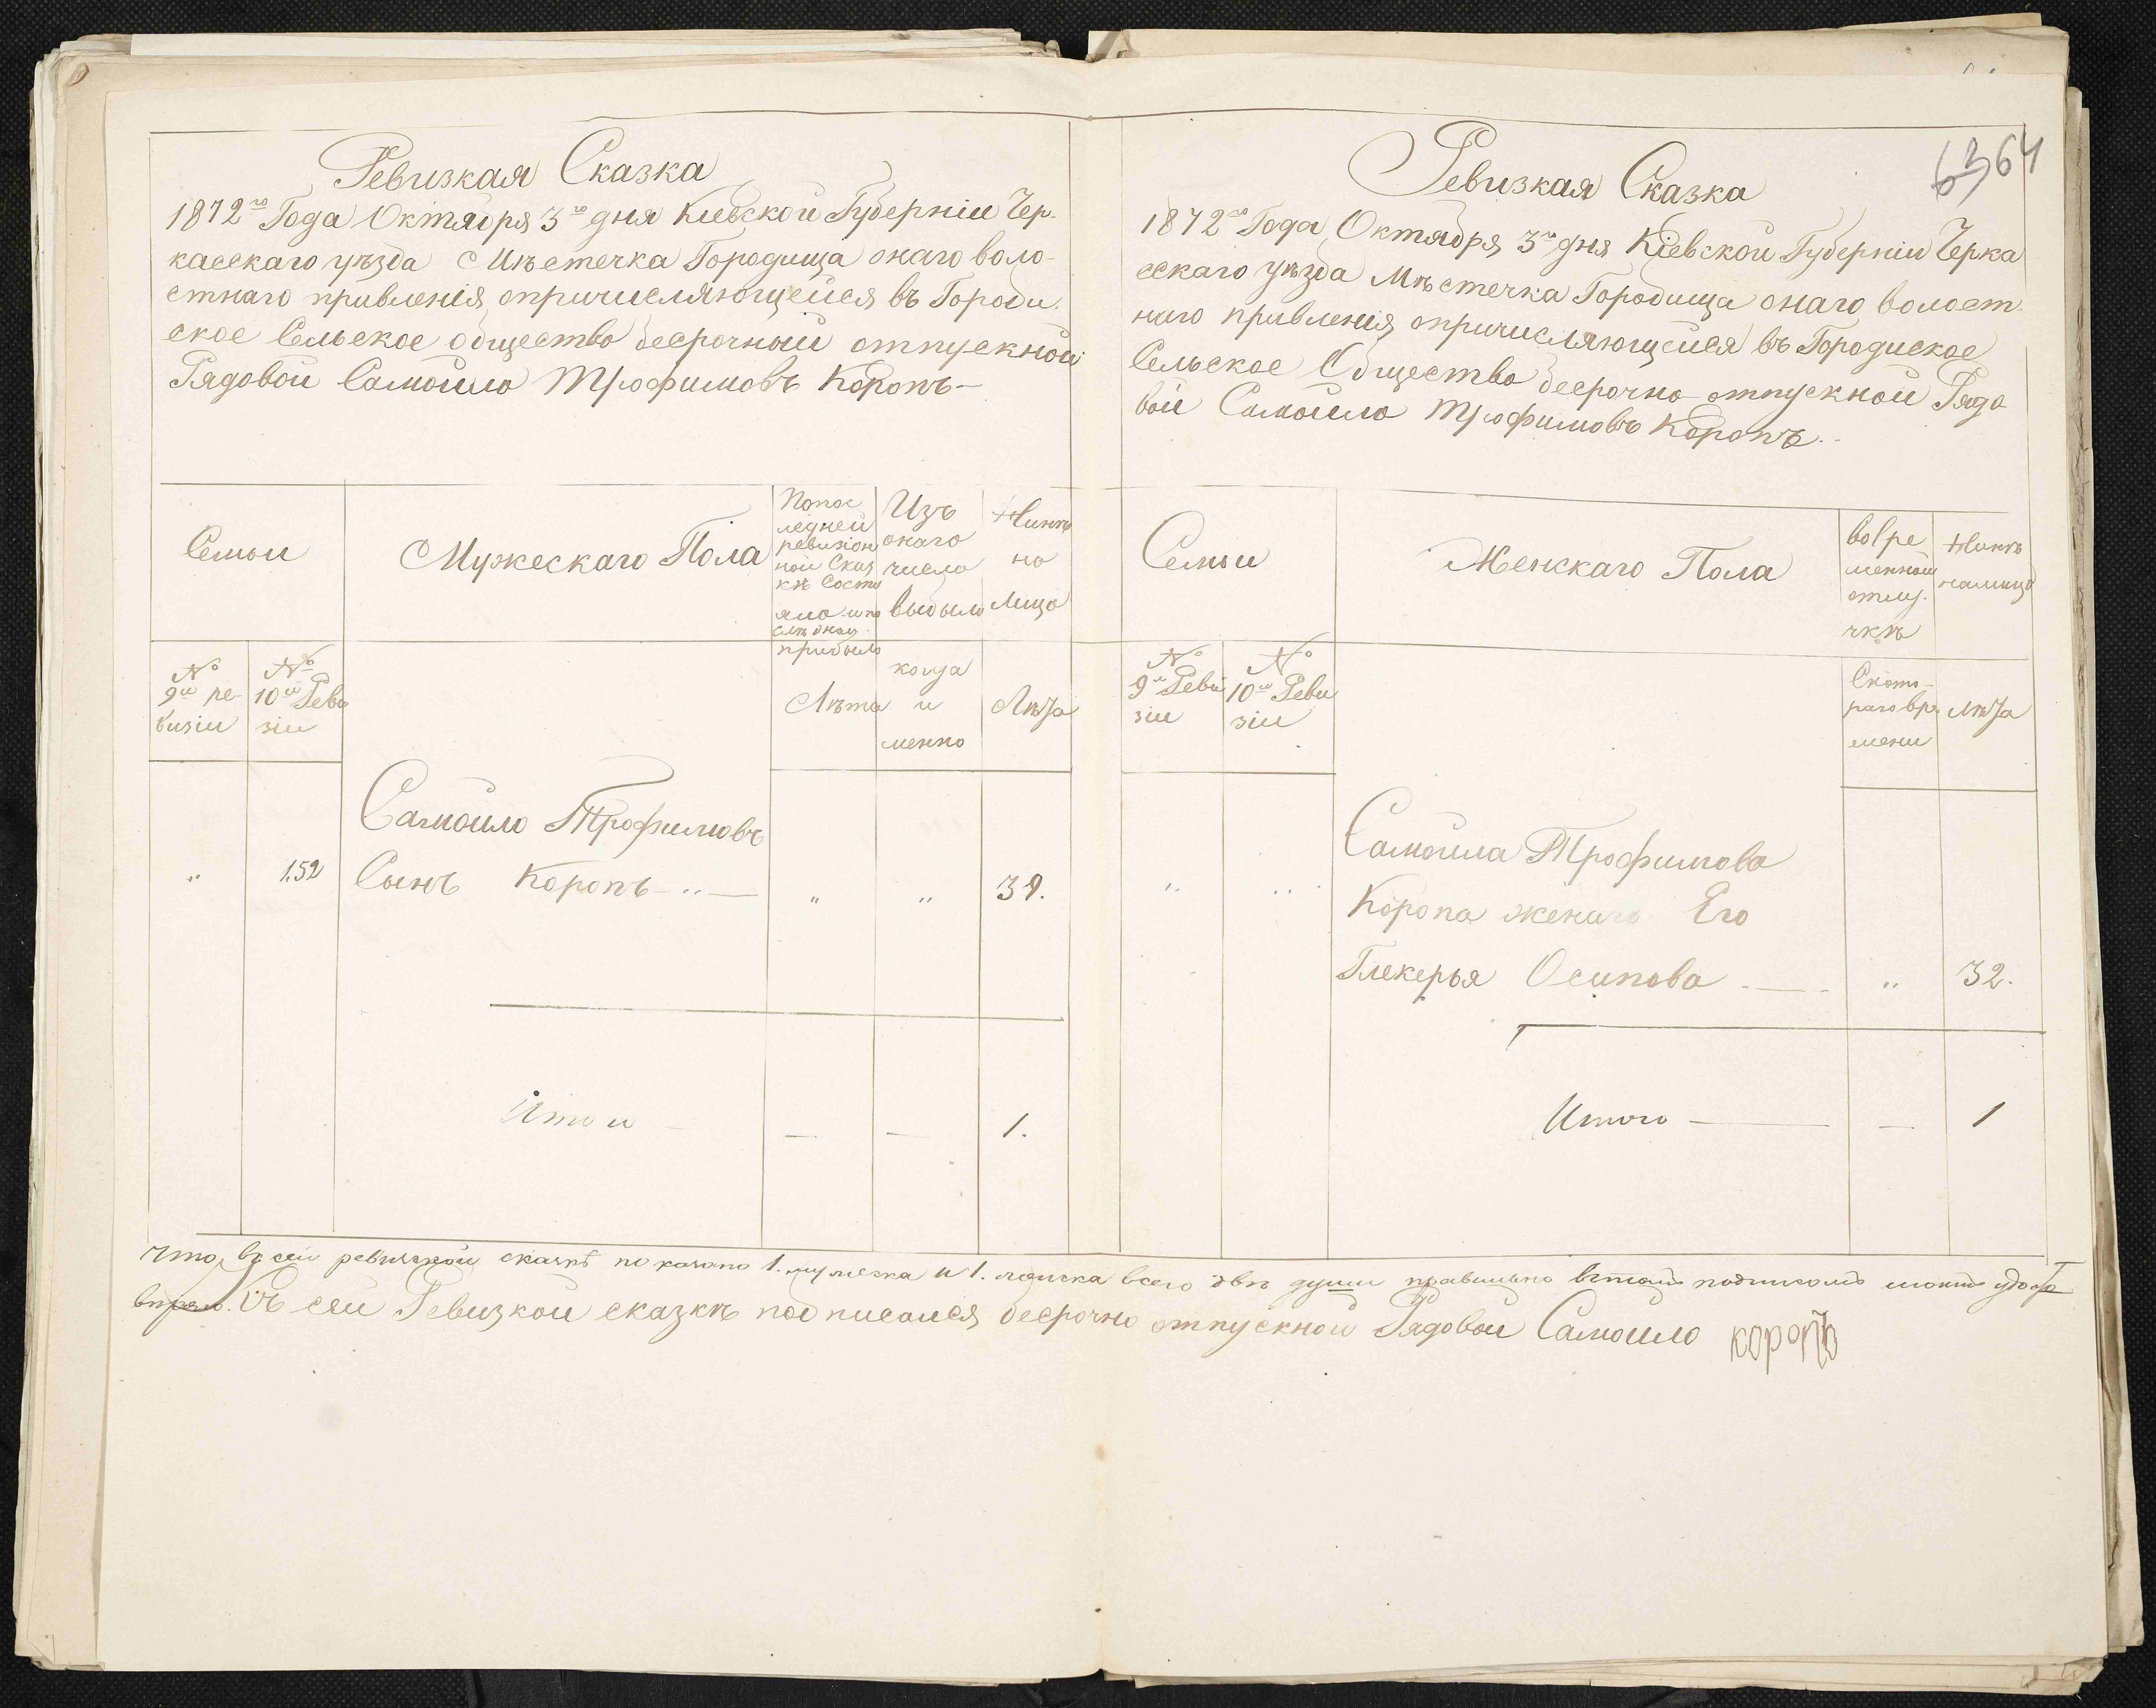 Ревизкая Сказка
1872го Года Октября 3го дня Кіевской Губерніи Чер-
касскаго уѣзда Мѣстечка Городища онаго воло-
стнаго правленія, опричисляющейся въ Городи-
ское Сельское общество бесрочный отпускной
Рядовой Самойло Трофимовъ Коропъ —
Семьи
Мужескаго Пола
Попос
ледней
ревизіон
ной Сказ
кѣ Состо
яло или по
слѣ оной
прибыло
Изъ
онаго
числа
выбыло
Нинѣ
на
Лицо
№
9й ре-
визіи
№
10й Реви
зіи
Лѣта
когда
и
менно
Лѣта
Самойло Трофимовъ
" 152 Сынъ Коропъ — " — " " 39.
Итого — — — 1.
63 64
Ревизкая Сказка
1872го Года Октября 3го дня Кіевской Губерніи Черка
сскаго уѣзда Мѣстечка Городища онаго волост
наго правленія, опричисляющейся въ Городиское
Сельское Общество бесрочно отпускной Рядо
вой Самойло Трофимовъ Коропъ.
Семьи
Женскаго Пола
Вовре
менной
отлу-
чкѣ
Нинѣ
налицо
№
9й Реви
зіи
№
10й Реви
зіи
Ското-
раго вре
мени
Лѣта
Самойла Трофимова
" " Коропа жена Его
Глекерья Осипова — " 32.
Итого — — 1
Что въ сей ревизской сказкѣ показано 1. мужеска и 1. женска всего двѣ души правильно втомъ подписомъ
Къ сей Ревизкой сказкѣ подписался бесрочно отпускной Рядовой Самойло коропъ